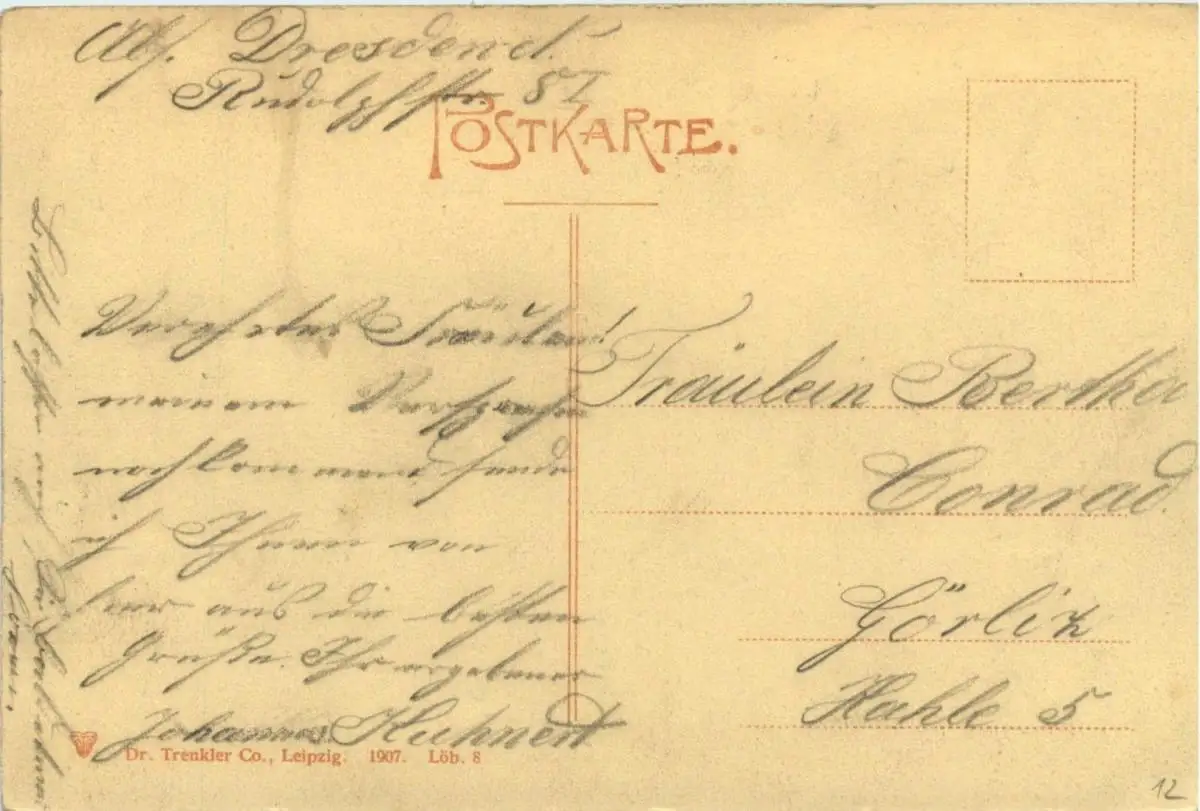 Abs. Dresden d.
Rudolfstr. 8 I
POSTKARTE.
Verehrtes Fräulein!
meinem Versprechen
nachkommend sende
ich Ihnen von
hier aus die besten
Grüße. Ihr ergebener
Johannes Kuhnert
Fräulein Bertha
Conrad.
Görlitz
Kahle 5
Bitte
Dr. Trenkler Co., Leipzig. 1907. Löb. 8
12